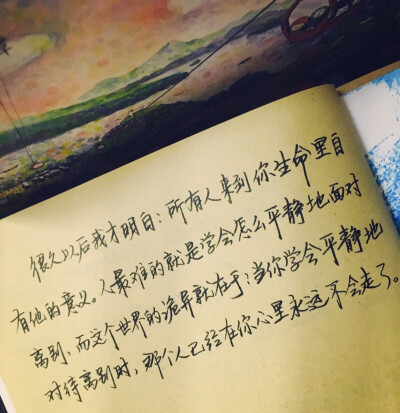 很久以后我才明白：所有人来到你生命里自
有他的意义。人最难的就是学会怎么平静地面对
离别，而这个世界的诡异就在于：当你学会平静地
对待离别时，那个人已经在你心里永远不会走了。